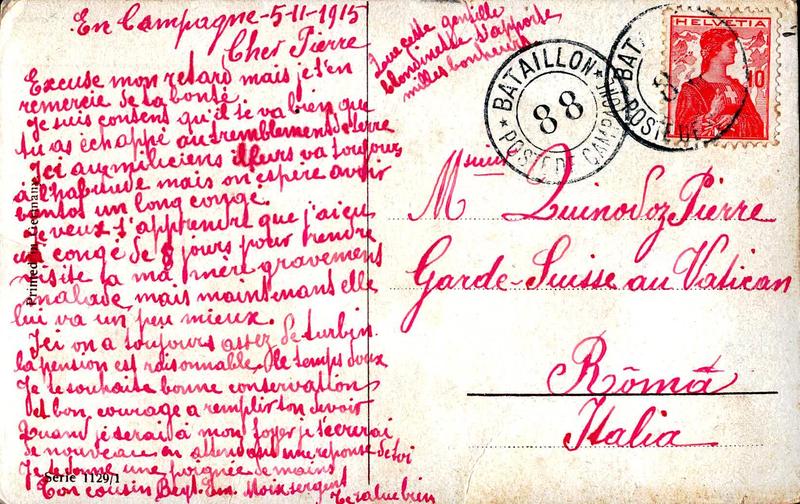 En Campagne - 5-11-1915
Cher Pierre
Excuse mon retard mais je t'en
remercie de ta bonté.
Je suis content qu'il te va bien que
tu as échappé au tremblement de terre
Ici au miliciens illeurs va toujours
à l'habitude mais on espère avoir
bientos un long congé.
Je veux t'apprendre que j'ai eu
un congé de 8 jours pour rendre
visite à ma mère gravement
malade, mais maintenant elle
lui va un peu mieux.
Ici on a toujours assez de turbin.
la pension est raisonnable, le temps doux
Je te souhaite bonne conservation
et bon courage a remplir ton devoir
Quand je serai à mon foyer je t'écrirai
de nouveau en attendant une réponse de toi
Je te donne une poignée de mains
Ton cousin Sergent
Te salue bien
Que cette gentille
blondinette t'apporte
milles bonheurs
Printed in Germany
Serie 1129/1
BATAILLON
88
POSTE DE CAMPAGNE
BAT
POSTE DE
HELVETIA
10
Msuiu
Mr Quinodoz Pierre
Garde-Suisse au Vatican
Rômâ
Italia